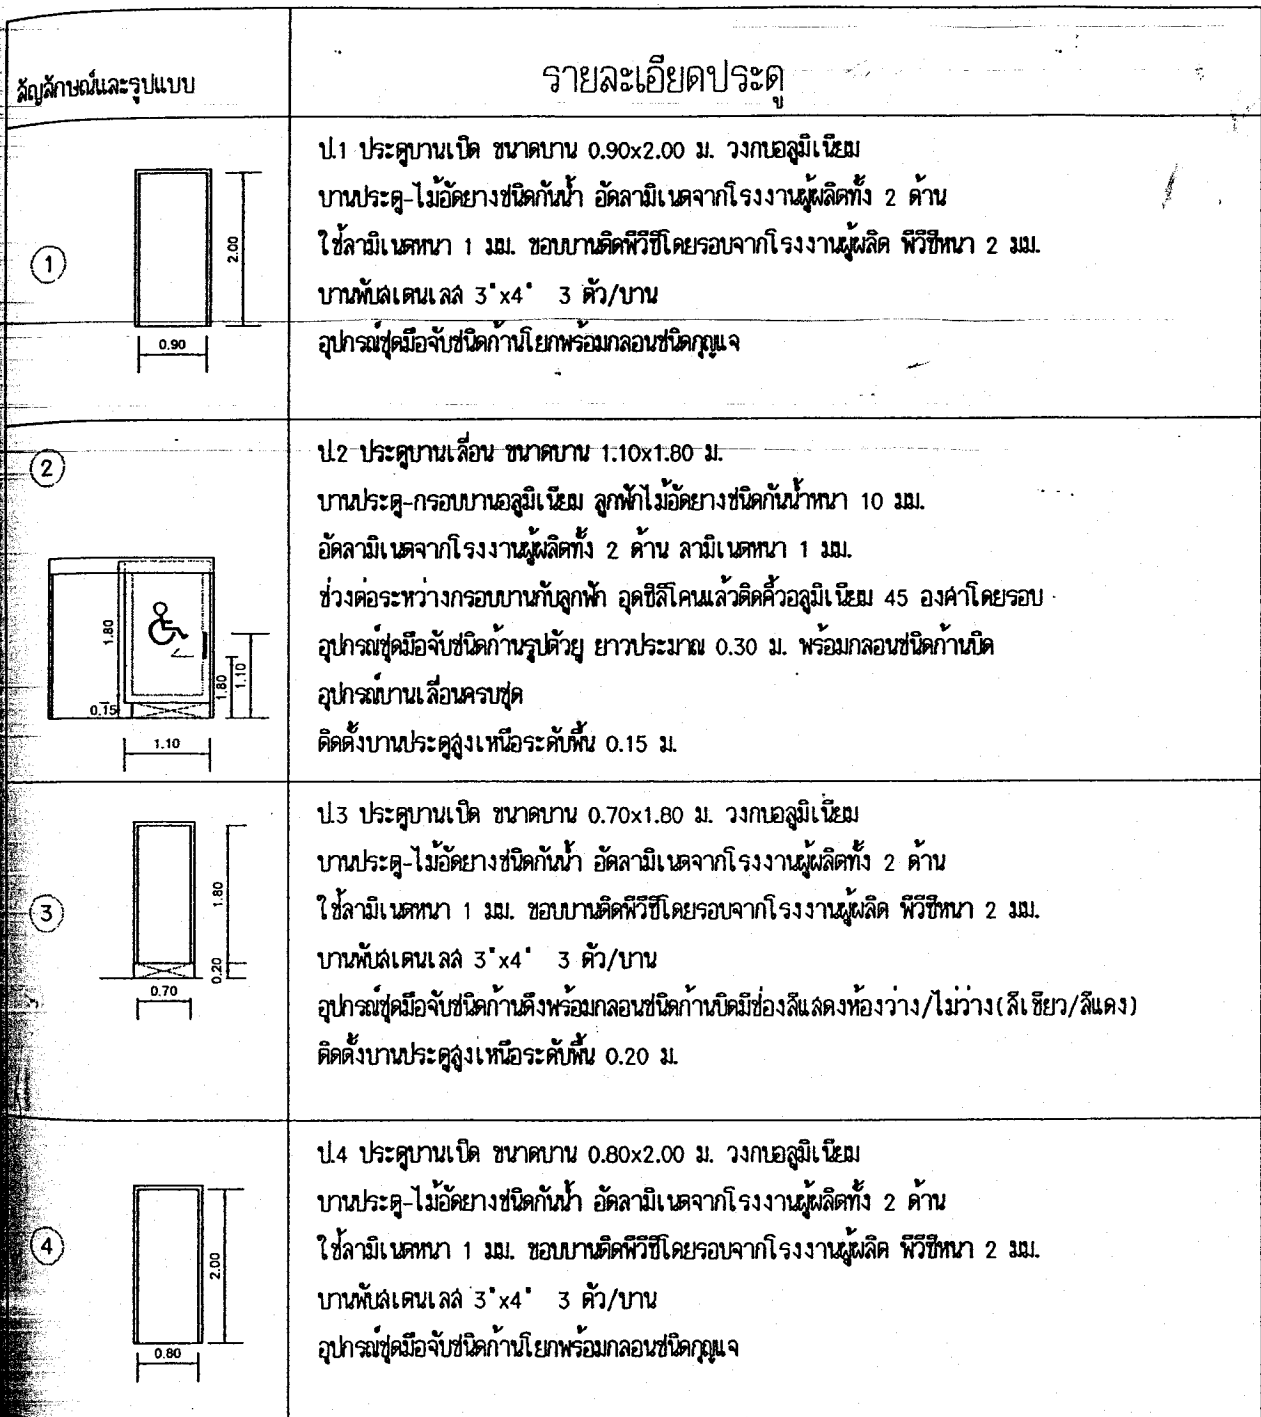 สัญลักษณ์และรูปแบบ
รายละเอียดประตู
ป.1 ประตูบานเปิด ขนาดบาน 0.90x2.00 ม. วงกบอลูมิเนียม
บานประตู-ไม้อัดยางชนิดกันน้ำ อัดลามิเนตจากโรงงานผู้ผลิตทั้ง 2 ด้าน
ใช้ลามิเนตหนา 1 มม. ขอบบานติดพีวีซีโดยรอบจากโรงงานผู้ผลิต พีวีซีหนา 2 มม.
บานพับสเตนเลส 3"x4" 3 ตัว/บาน
อุปกรณ์ชุดมือจับชนิดก้านโยกพร้อมกลอนชนิดกุญแจ
1
2.00
0.90
ป.2 ประตูบานเลื่อน ขนาดบาน 1.10x1.80 ม.
บานประตู-กรอบบานอลูมิเนียม ลูกฟักไม้อัดยางชนิดกันน้ำหนา 10 มม.
อัดลามิเนตจากโรงงานผู้ผลิตทั้ง 2 ด้าน ลามิเนตหนา 1 มม.
ช่วงต่อระหว่างกรอบบานกับลูกฟัก อุดซิลิโคนแล้วติดคิ้วอลูมิเนียม 45 องศาโดยรอบ
อุปกรณ์ชุดมือจับชนิดก้านรูปตัวยู ยาวประมาณ 0.30 ม. พร้อมกลอนชนิดก้านบิด
อุปกรณ์บานเลื่อนครบชุด
ติดตั้งบานประตูสูงเหนือระดับพื้น 0.15 ม.
2
1.80
0.15
1.80
1.10
1.10
ป.3 ประตูบานเปิด ขนาดบาน 0.70x1.80 ม. วงกบอลูมิเนียม
บานประตู-ไม้อัดยางชนิดกันน้ำ อัดลามิเนตจากโรงงานผู้ผลิตทั้ง 2 ด้าน
ใช้ลามิเนตหนา 1 มม. ขอบบานติดพีวีซีโดยรอบจากโรงงานผู้ผลิต พีวีซีหนา 2 มม.
บานพับสเตนเลส 3"x4" 3 ตัว/บาน
อุปกรณ์ชุดมือจับชนิดก้านดึงพร้อมกลอนชนิดก้านบิดมีช่องสีแสดงห้องว่าง/ไม่ว่าง(สีเขียว/สีแดง)
ติดตั้งบานประตูสูงเหนือระดับพื้น 0.20 ม.
3
1.80
0.20
0.70
ป.4 ประตูบานเปิด ขนาดบาน 0.80x2.00 ม. วงกบอลูมิเนียม
บานประตู-ไม้อัดยางชนิดกันน้ำ อัดลามิเนตจากโรงงานผู้ผลิตทั้ง 2 ด้าน
ใช้ลามิเนตหนา 1 มม. ขอบบานติดพีวีซีโดยรอบจากโรงงานผู้ผลิต พีวีซีหนา 2 มม.
บานพับสเตนเลส 3"x4" 3 ตัว/บาน
อุปกรณ์ชุดมือจับชนิดก้านโยกพร้อมกลอนชนิดกุญแจ
4
2.00
0.80